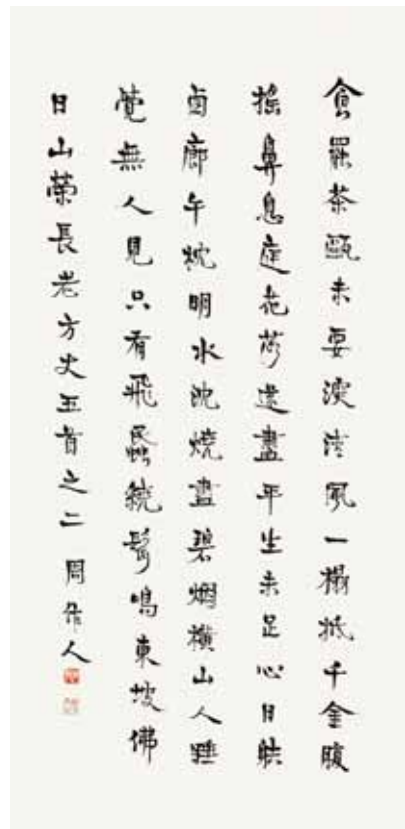 食罷茶甌未要深清風一榻抵千金腹
搖鼻息庭花落還盡平生未足心日䠶
囬廊午枕明水沈燒盡碧烟橫山人睡
覺無人見只有飛蟁繞鬢鳴東坡佛
日山榮長老方丈五首之二 周作人